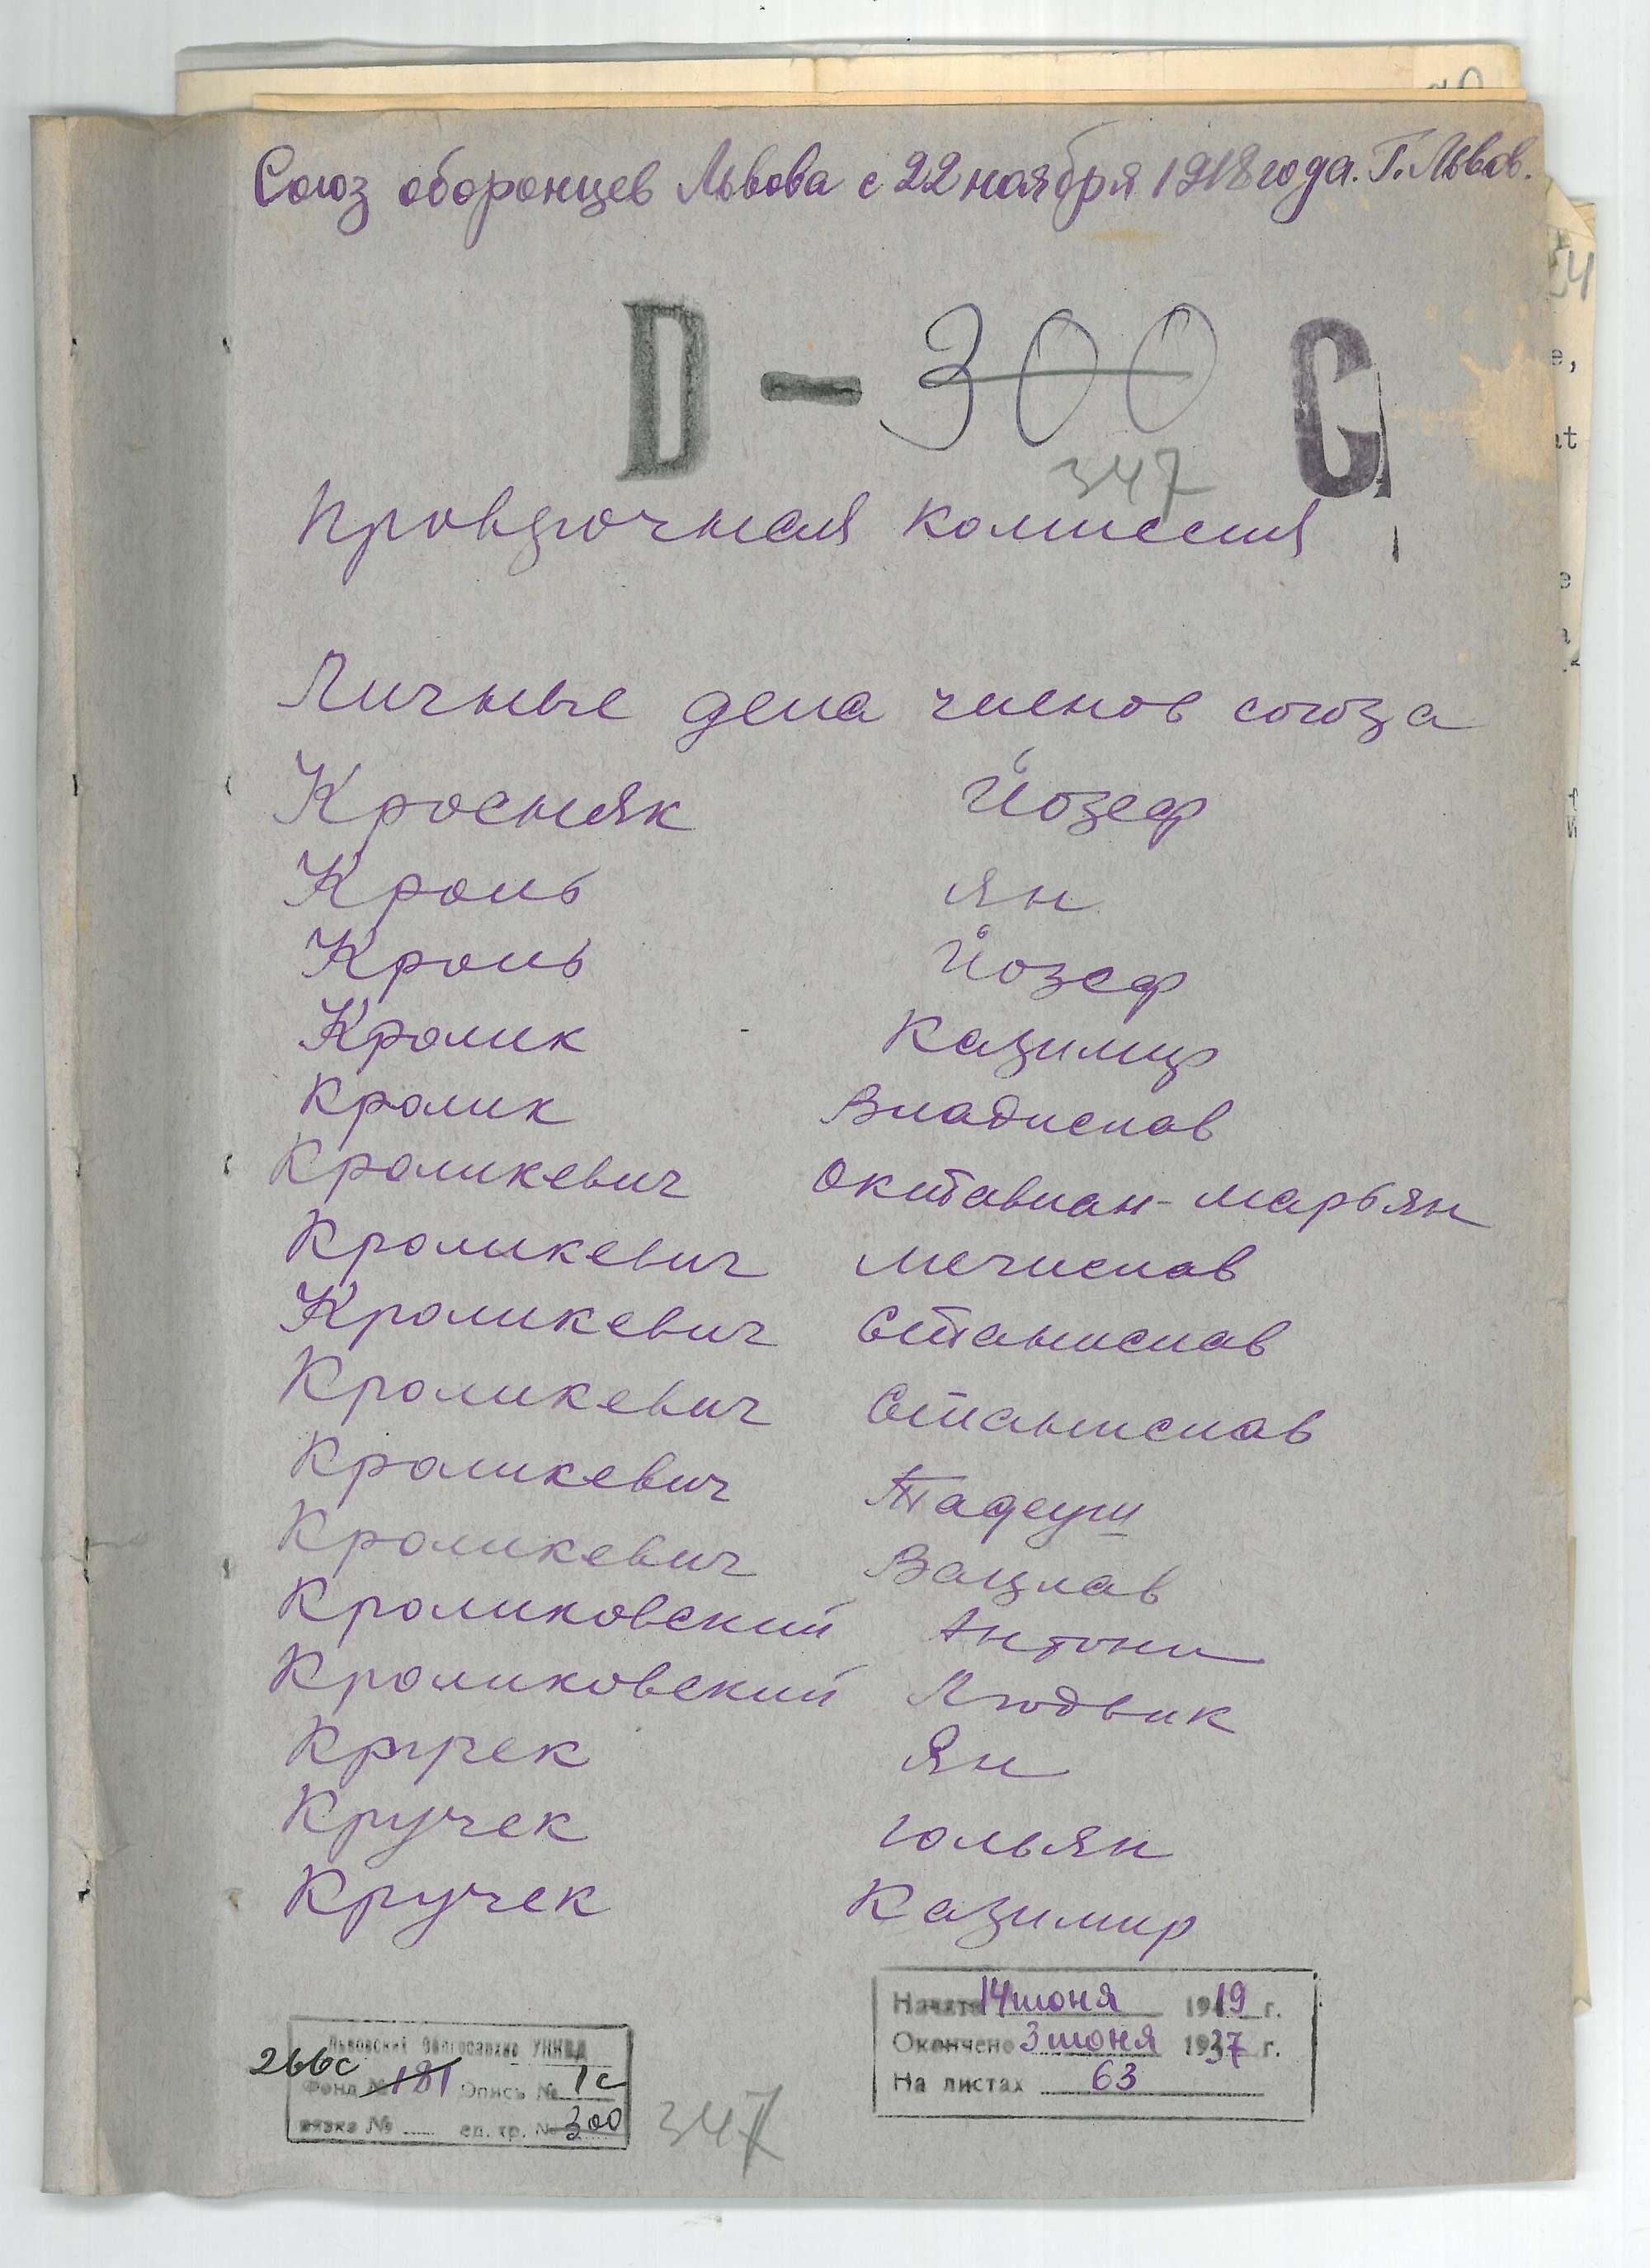 Союз оборонцев Львова с 22 ноября 1918 года. Г. Львов.
D - 300 С
347
Проверочная комиссия
Личные дела членов союза
Кросняк Йозеф
Кроль Ян
Кроль Йозеф
Кролик Казимир
Кролик Владислав
Кроликевич Октавиан-Марьян
Кроликевич Мечислав
Кроликевич Станислав
Кроликевич Станислав
Кроликевич Тадеуш
Кроликевич Вацлав
Кроликовский Антони
Кроликовский Людвик
Кручек Ян
Кручек Юльян
Кручек Казимир
Начато 14 июня 1919 г.
Окончено 3 июня 1937 г.
На листах 63
Львовский Облгосархив УНКВД
266с
Фонд № 181 Опись № 1с
вязка № ед. хр. № 300
347